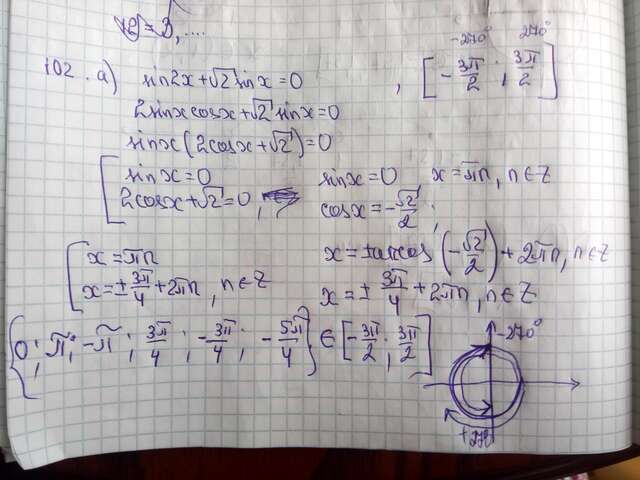 102. a) sin2x + √2 sinx = 0 , [-3π/2 ; 3π/2]
-270° 270°
2sinxcosx + √2 sinx = 0
sinx(2cosx + √2) = 0
[ sinx = 0
2cosx + √2 = 0,
sinx = 0 x = πn, n∈Z
cosx = -√2/2 ;
x = ±arccos(-√2/2) + 2πn, n∈Z
x = ± 3π/4 + 2πn, n∈Z
[ x = πn
x = ± 3π/4 + 2πn, n∈Z
{0; π; -π; 3π/4; -3π/4; -5π/4} ∈ [-3π/2; 3π/2]
-270°
+270°